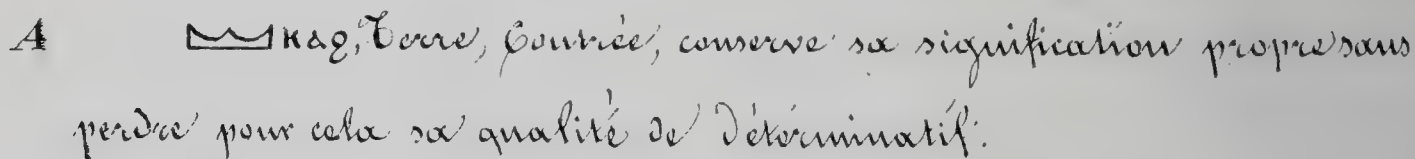 A 𓈉 ⲕⲁϩ, Terre, Contrée, conserve sa signification propre sans
perdre pour cela sa qualité de Déterminatif.